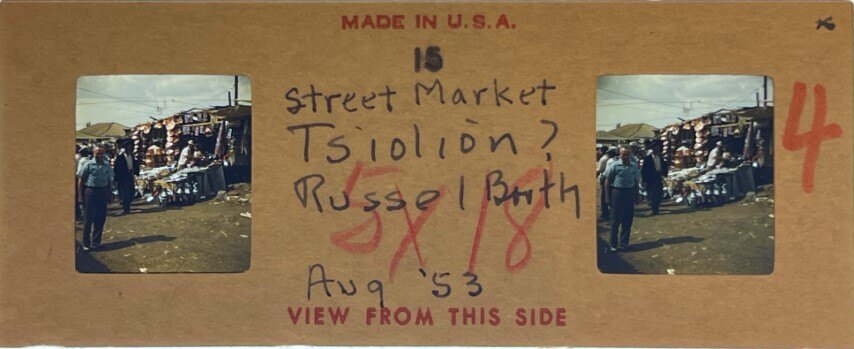 MADE IN U.S.A.
15
Street Market
Tsiolion?
Russel Booth
5X18
4
Aug '53
VIEW FROM THIS SIDE